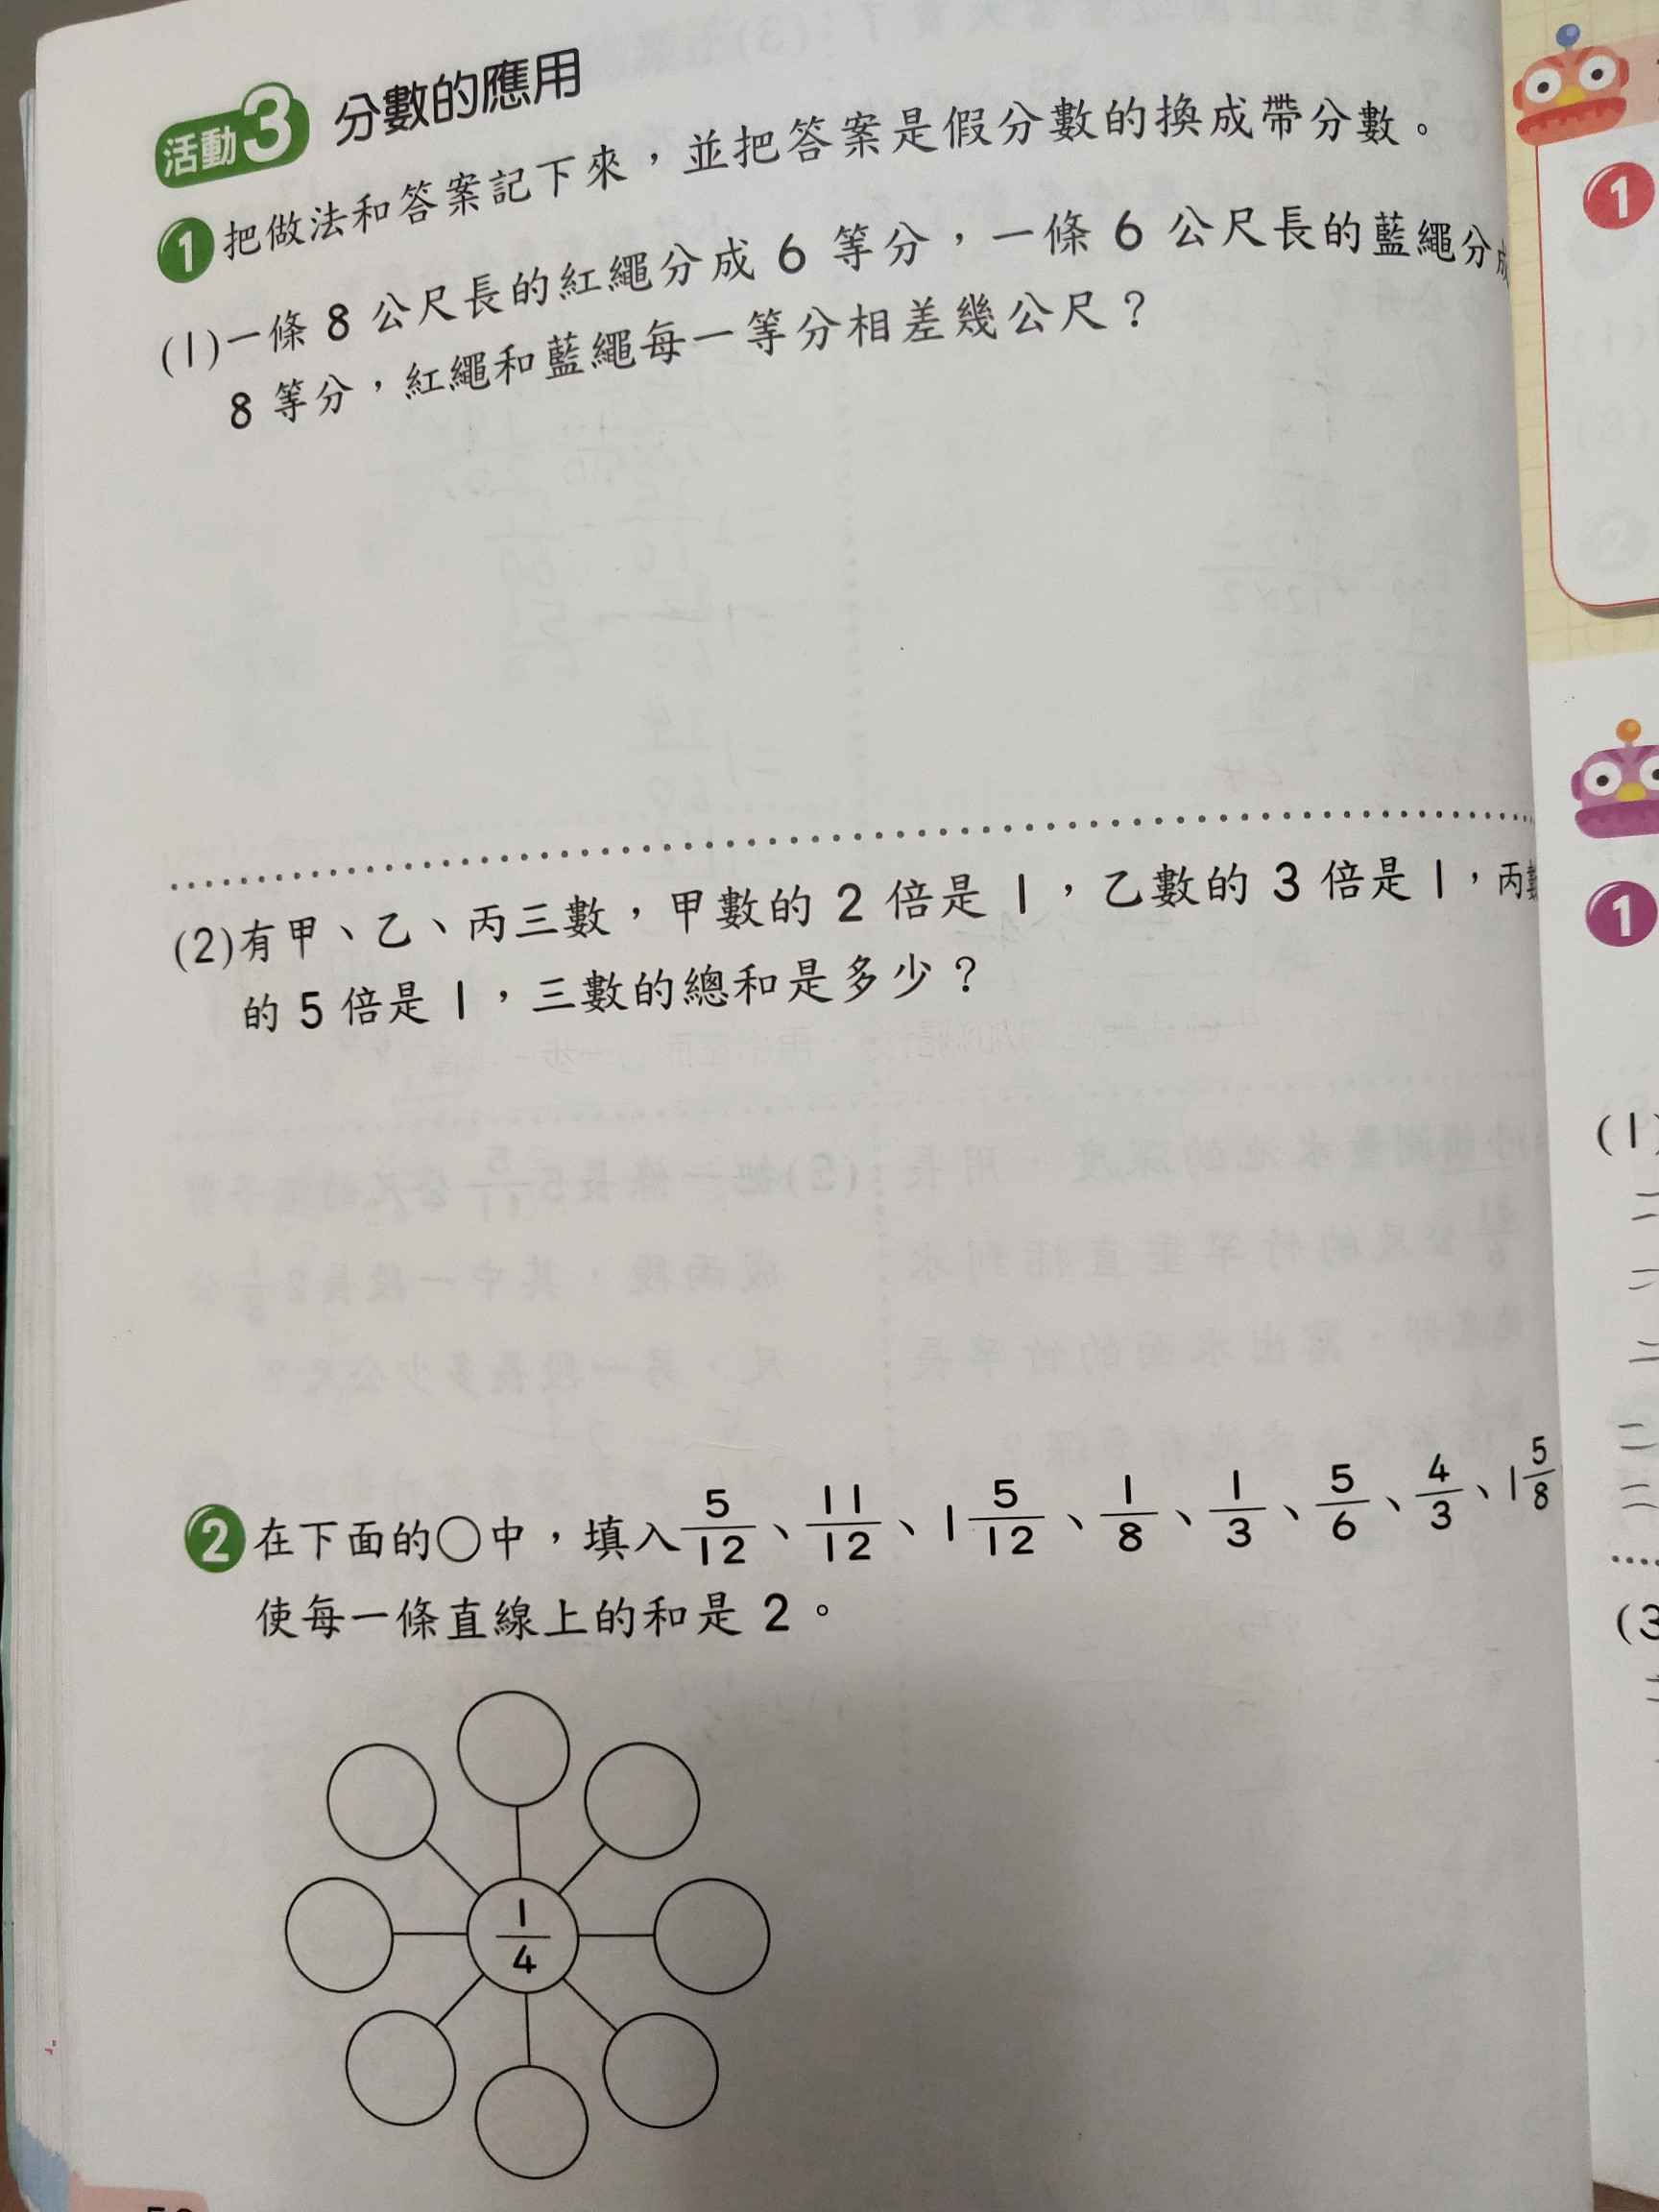 活動3 分數的應用
1 把做法和答案記下來，並把答案是假分數的換成帶分數。
(1)一條 8 公尺長的紅繩分成 6 等分，一條 6 公尺長的藍繩分成
8 等分，紅繩和藍繩每一等分相差幾公尺？
(2)有甲、乙、丙三數，甲數的 2 倍是 1，乙數的 3 倍是 1，丙數
的 5 倍是 1，三數的總和是多少？
2 在下面的○中，填入 5/12、11/12、1 5/12、1/8、1/3、5/6、4/3、1 5/8
使每一條直線上的和是 2。
1/4
1
1
(1)
(3